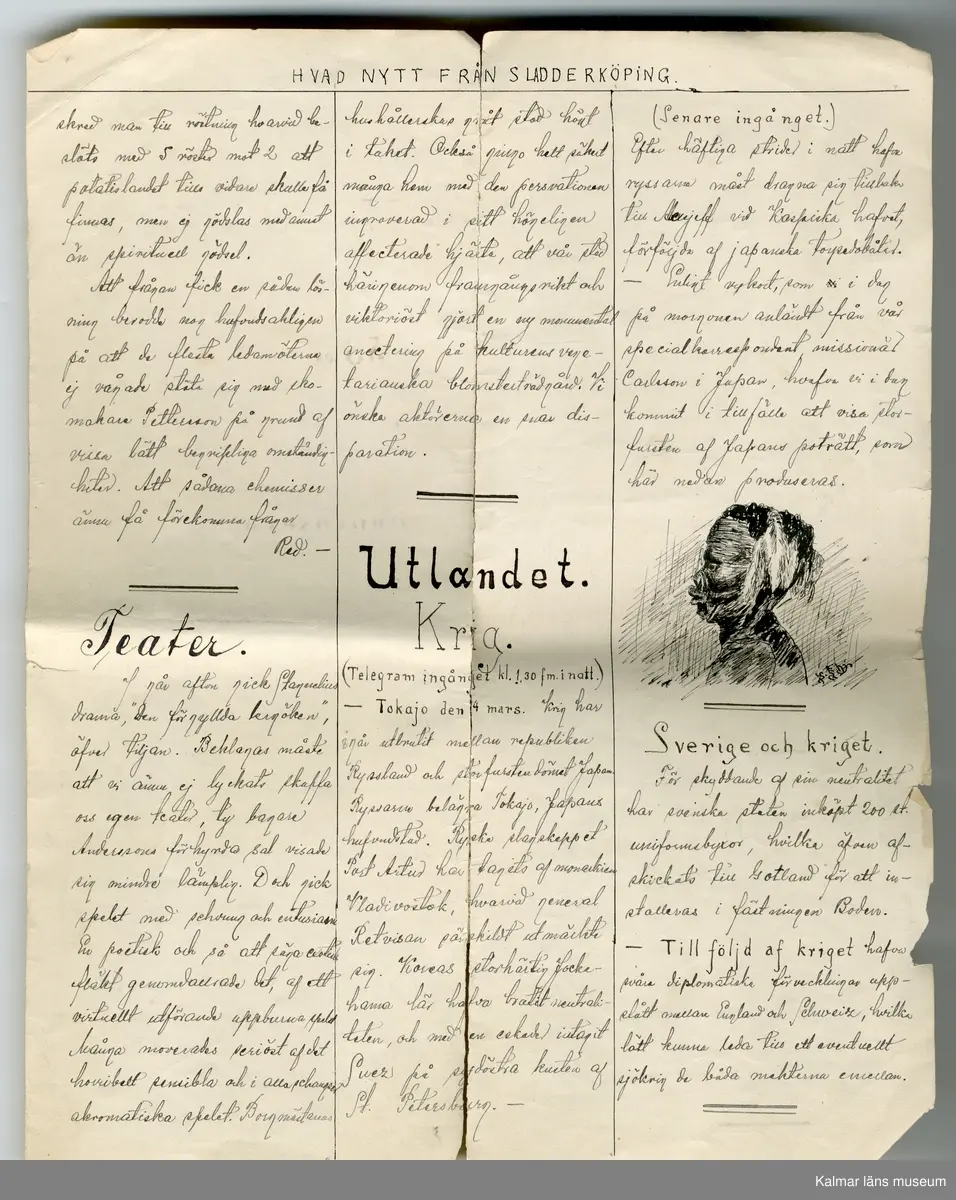 HVAD NYTT FRÅN SLADDERKÖPING.
skred man till röstning hvarvid be-
slöts med 5 röster mot 2 att
potatislandet tills vidare skulle få
finnas, men ej gödslas med annat
än spirituell gödsel.
Att frågan fick en sådan lös-
ning berodde nog hufvudsakligen
på att de flesta ledamöterna
ej vågade stöta sig med sko-
makare Pettersson på grund af
vissa lätt begripliga omständig-
heter. Att sådana chemisser
ännu få förekomma frågar
Red. —
Teater.
I går afton gick Stagnelius
drama, "Den förgyllda lergöken",
öfver tiljan. Beklagas måste
att vi ännu ej lyckats skaffa
oss egen teater, ty bagare
Anderssons förhyrda sal visade
sig mindre lämplig. Doch gick
spelet med schvung och enturiasm
En poetisk och så att säga
fläkt genomdallrade det, af ett
virtuellt utförande uppburna, spelet
Många moverades seriöst af det
horribelt sensibla och i alla schanger
akromatiska spelet. Borgmästarens
hushållerskas gråt stod högt
i taket. Också gingo helt säkert
många hem med den persvationen
ingraverad i sitt högeligen
affecterade hjärta, att vår stad
härigenom framgångsrikt och
viktoriöst gjort en ny monumental
anectering på kulturens vege-
tarianska blomsterträdgård. Vi
önska aktörerna en snar dis-
paration.
Utlandet.
Krig.
(Telegram ingånget kl. 1,30 fm. i natt.)
— Tokajo den 4 mars. Krig har
igår utbrutit mellan republiken
Ryssland och storfurstendömet Japan.
Ryssarna belägra Tokajo, Japans
hufvudstad. Ryska slagskeppet
Port Artur har tagets af monarkien
Vladivostok, hvarvid general
Retvisan särskildt utmärkte
sig. Koreas storhärtig Jocke-
hama lär hafva brutit neutrali-
teten, och med en eskader intagit
Suez på sydöstra kusten af
St. Petersbourg. —
(Senare ingånget.)
Efter häftiga strider i natt hafva
ryssarne måst dragna sig tillbaka
till vid Kaspiska hafvet,
förföljda af japanska torpedobåtar.
— Enligt vykort, som i dag
på morgonen anländt från vår
specialkorrespondent, missionär
Carlsson i Japan, hafva vi i dag
kommit i tillfälle att visa stor-
fursten af Japans poträtt, som
här nedan produseras.
Sverige och kriget.
För skyddande af sin neutralitet
har svenska staten inköpt 200 st.
uniformsbyxor, hvilka äfven af-
skickats till Gotland för att in-
stalleras i fästningen Boden.
— Till följd af kriget hafva
svåra diplomatiska förvecklingar upp-
stått mellan England och Schweiz, hvilka
lätt kunna leda till ett eventuellt
sjökrig de båda makterna emellan.
Kalmar läns museum